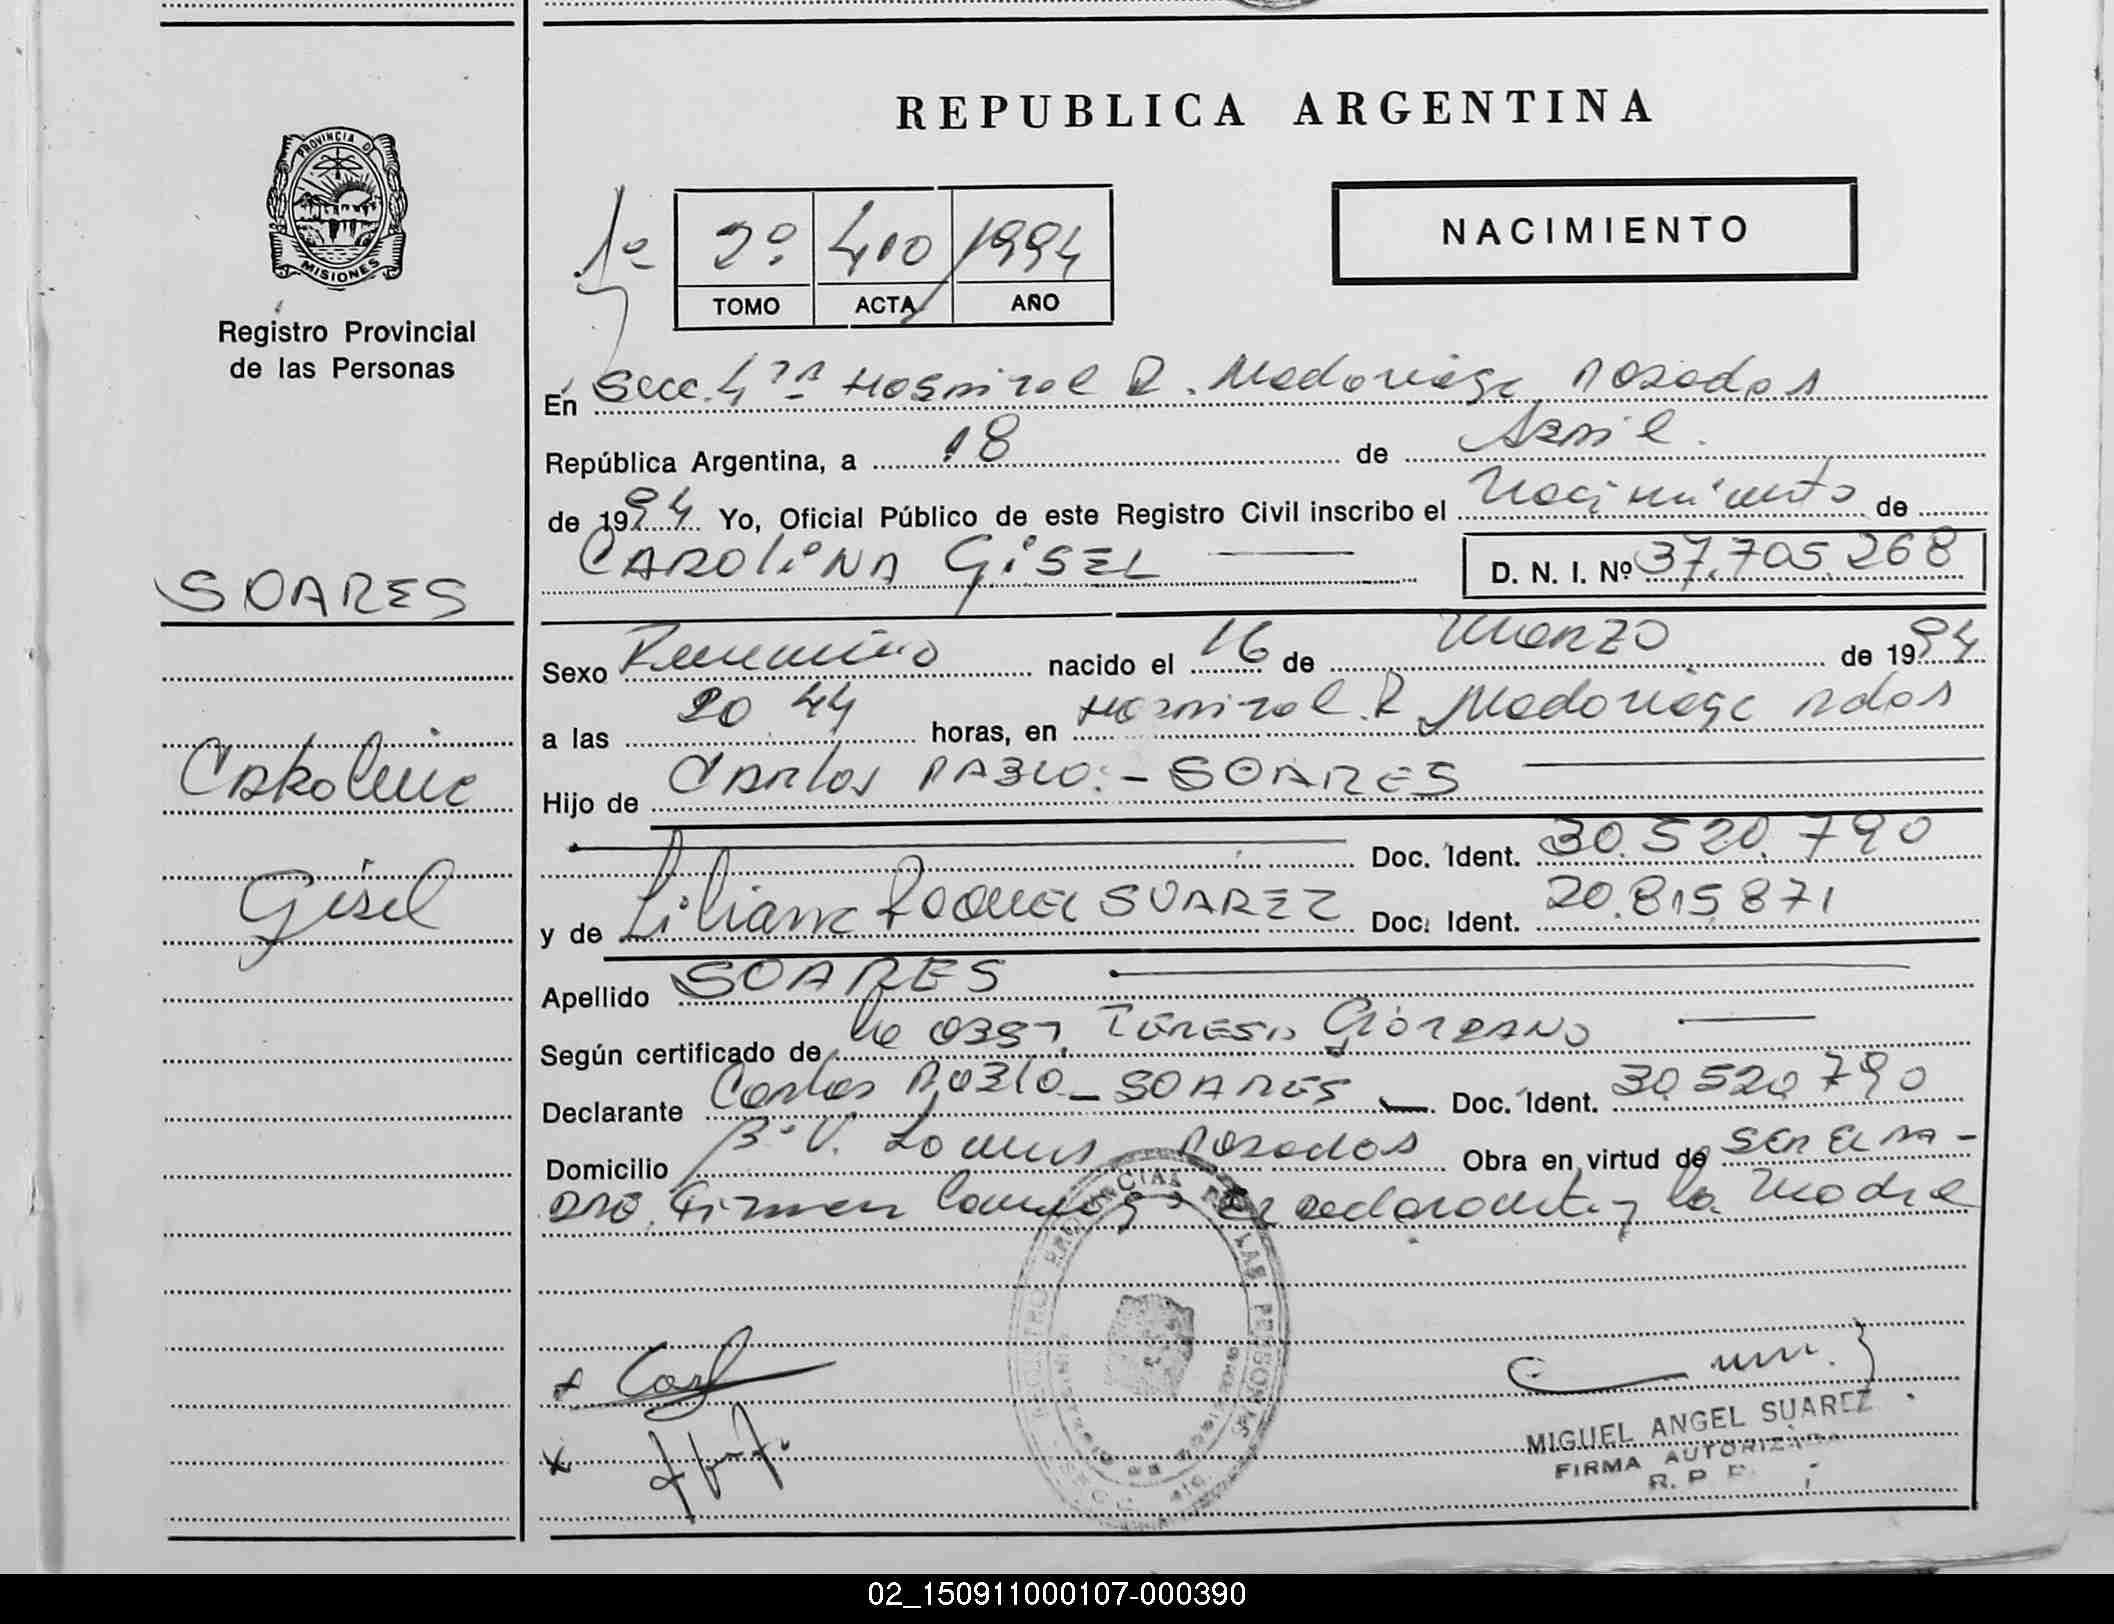 REPUBLICA ARGENTINA
PROVINCIA D
MISIONES
Registro Provincial
de las Personas
1º 2º 410 1994
TOMO ACTA AÑO
NACIMIENTO
En Secc. 4ta Hospital R. Madariaga Posadas
República Argentina, a 18 de Abril.
de 1994 Yo, Oficial Público de este Registro Civil inscribo el Nacimiento de
CAROLINA GISEL D. N. I. Nº 37.705.268
SOARES
Carolina
Gisel
Sexo Femenino nacido el 16 de Marzo de 1994
a las 20 44 horas, en Hospital R. Madariaga Pdas
Hijo de Carlos PABLO - SOARES
Doc. Ident. 30.520.790
y de Liliana Raquel SUAREZ Doc. Ident. 20.815.871
Apellido SOARES
Según certificado de la OBST. TERESA GIORDANO
Declarante Carlos Pablo - SOARES Doc. Ident. 30.520.790
Domicilio Bº V. Posadas Obra en virtud de ser el pa-
dre. Firman conmigo el declarante y la Madre
MIGUEL ANGEL SUAREZ
FIRMA AUTORIZADA
R. P. P.
02_150911000107-000390